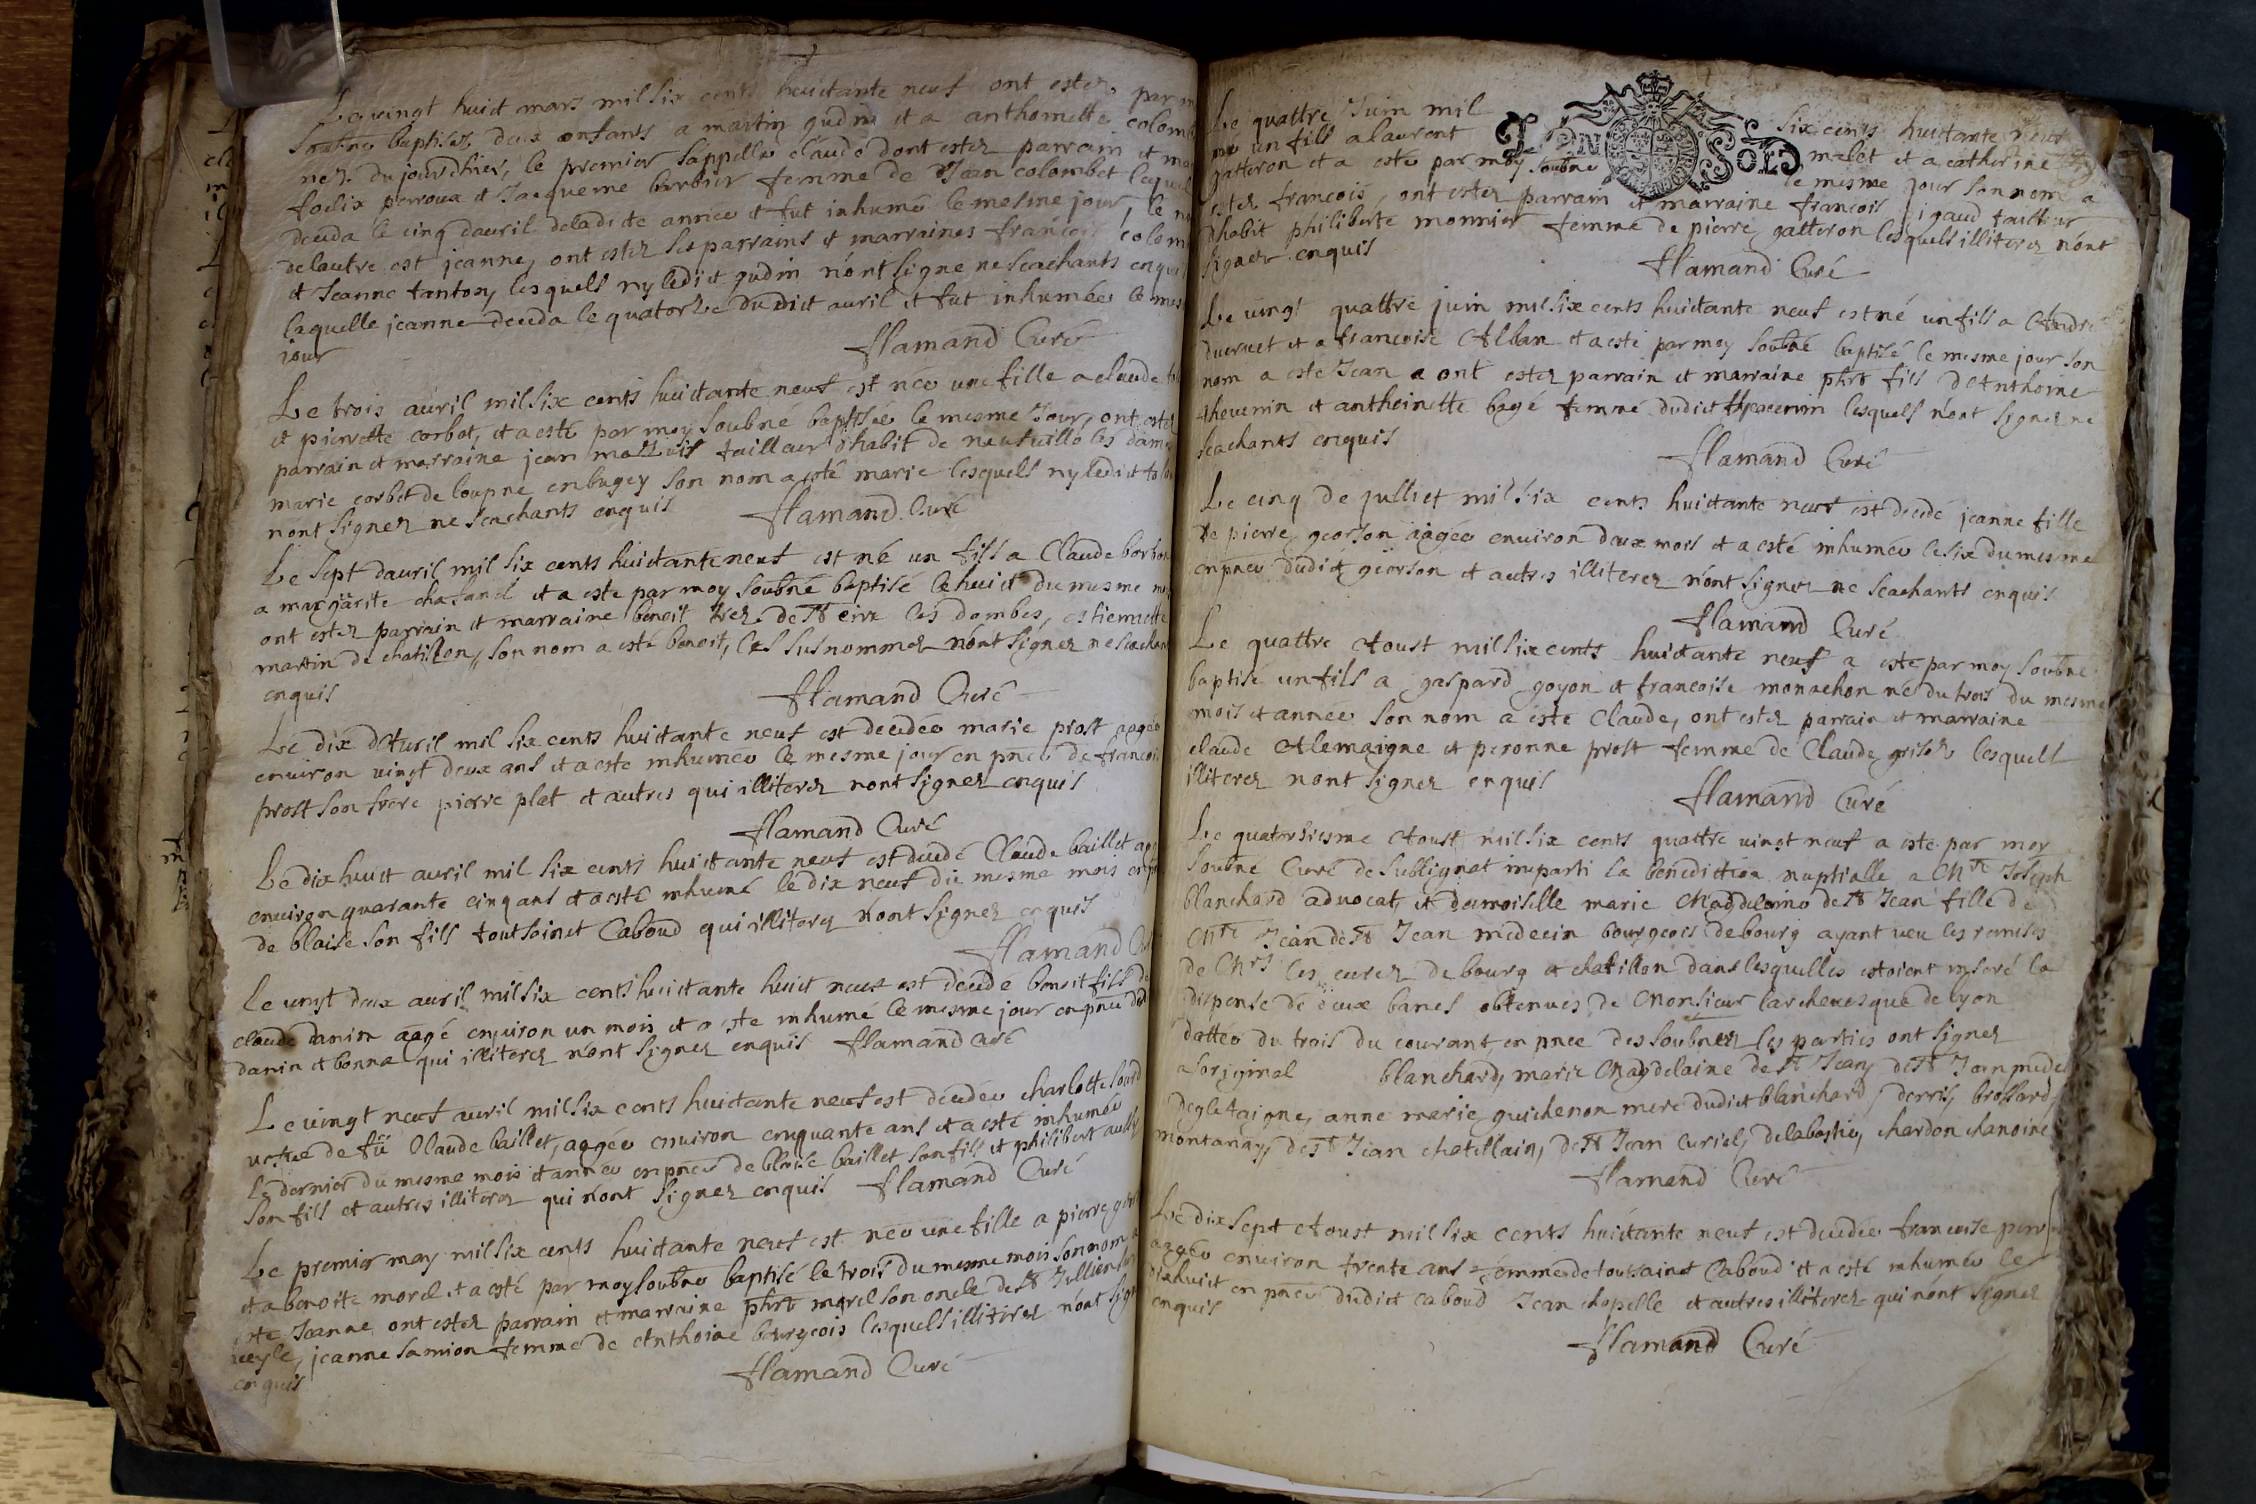 Le vingt huict mars mil six cents huictante neuf ont ester par
soubne baptiser deux enfants a martin gudin et a anthomette colom
nez du jourdhier, le premier sappelle claude dont ester parrain et
foelix perroux et Jacqueme barbier femme de Jean colombet
deceda le cinq dauril deladicte annee et fut inhumé le mesme jour, le
delautre est jeanne, ont ester ses parrains et marraines françois colom
et Jeanne tantony lesquels ny ledict gudin n'ont signe ne scachants
laquelle jeanne deceda le quatorze dudict auril et fut inhumée le mes
jour
flamand Curé
Le trois auril mil six cents huictante neuf est née une fille a claude
et pierrette corbet, et a esté par moy soubné baptisée le mesme jour, ont ester
parrain et marraine jean tailleur d'habit de neufuille les dames
marie corbet de loupne en bugey son nom a esté marie lesquels ny ledict
n'ont signer ne scachants enquis
flamand Curé
Le sept dauril mil six cents huictante neuf est né un fils a Claude
a margarite chafand et a este par moy soubné baptisé le huict du mesme
ont ester parrain et marraine benoit de St les dombes, estiennette
martin de chatillon, son nom a esté benoit, les susnommer n'ont signer ne scachan
enquis
flamand Curé
Le dix d'Auril mil six cents huictante neuf est decedée marie prost aagée
enuiron vingt deux ans et a este inhumée le mesme jour en pnce de francois
prost son frere pierre plat et autres qui illiterer n'ont signer enquis
flamand Curé
Le dix huict auril mil six cents huictante neuf est decedé Claude baillet
enuiron quarante cinq ans et a esté inhumé le dix neuf du mesme mois
de blaise son fils toutsainct Caboud qui illiterer n'ont signer enquis
flamand
Le vingt deux auril mil six cents huictante huict neuf est decedé benoit fils de
claude danin aagé enuiron un mois et a este inhumé le mesme jour en pnce
danin et bonna qui illiterer n'ont signer enquis flamand Curé
Le vingt neuf auril mil six cents huictante neuf est decedée charlotte
de fü Claude baillet, aagée enuiron cinquante ans et a esté inhumée
le dernier du mesme mois et année en pnce de blaise baillet son fils et philibert
son fils et autres illiterer qui n'ont signer enquis flamand Curé
Le premier may mil six cents huictante neuf est née une fille a pierre
et a benoite morel et a esté par moy soubne baptisé le trois du mesme mois son nom
este Jeanne ont ester parrain et marraine phrt morel son oncle de St Jullien
veyle, jeanne samion femme de Anthoine bourgeois lesquels illiterer n'ont
enquis
flamand Curé
Le quattre Juin mil six cents huictante neuf
un fils a laurent malet et a catherine
gatteron et a esté par moy soubne le mesme jour son nom a
ester françois, ont ester parrain et marraine francois tailleur
d'habit philiberte monnier femme de pierre gatteron lesquels illiterer n'ont
signer enquis
flamand Curé
Le vingt quattre juin mil six cents huictante neuf est né un fils a Andre
duernet et a francoise Alban et a esté par moy soubné baptisé le mesme jour son
nom a este Jean ont ester parrain et marraine phrt fils d'Anthoine
theuenin et anthoinette bagé femme dudict lesquels n'ont signer ne
scachants enquis
flamand Curé
Le cinq de julliet mil six cents huictante neuf est decedé jeanne fille
de pierre georson aagée enuiron deux mois et a esté inhumée le six du mesme
en pnce dudict georson et autres illiterer n'ont signer ne scachants enquis
flamand Curé
Le quattre Aoust mil six cents huictante neuf a este par moy soubne
baptisé un fils a gaspard goyon et francoise monachon né du trois du mesme
mois et annee son nom a este Claude, ont ester parrain et marraine
claude Alemaigne et peronne prost femme de Claude grisoz lesquels
illiterer n'ont signer enquis
flamand Curé
Le quatorsiesme Aoust mil six cents quattre vingt neuf a este par moy
soubné Curé de Sublignat imparti la benediction nuptialle a Mtre Joseph
blanchard advocat, et damoiselle marie Magdelaine de St Jean fille de
Mtre Jean de St Jean médecin bourgeois de bourg ayant veu les remises
de Mrs les curez de bourg et chatillon dans lesquelles estoient inseré la
dispense de deux bancs obtenues de Monsieur l'archeuesque de lyon
dattée du trois du courant, en pnce des soubner les parties ont signer
a l'original blanchard, marie Magdelaine de St Jean, de St Jean
anne marie guichenon mere dudict blanchard, brossard,
montanay, de St Jean chatellain, de St Jean Curiel, delabastie, chardon chanoine
flamand Curé
Le dix sept Aoust mil six cents huictante neuf est decedée francoise
aagée enuiron trente ans femme de toutsainct Caboud et a esté inhumée le
dixhuict en pnce dudict caboud Jean chapelle et autres illiterer qui n'ont signer
enquis
flamand Curé